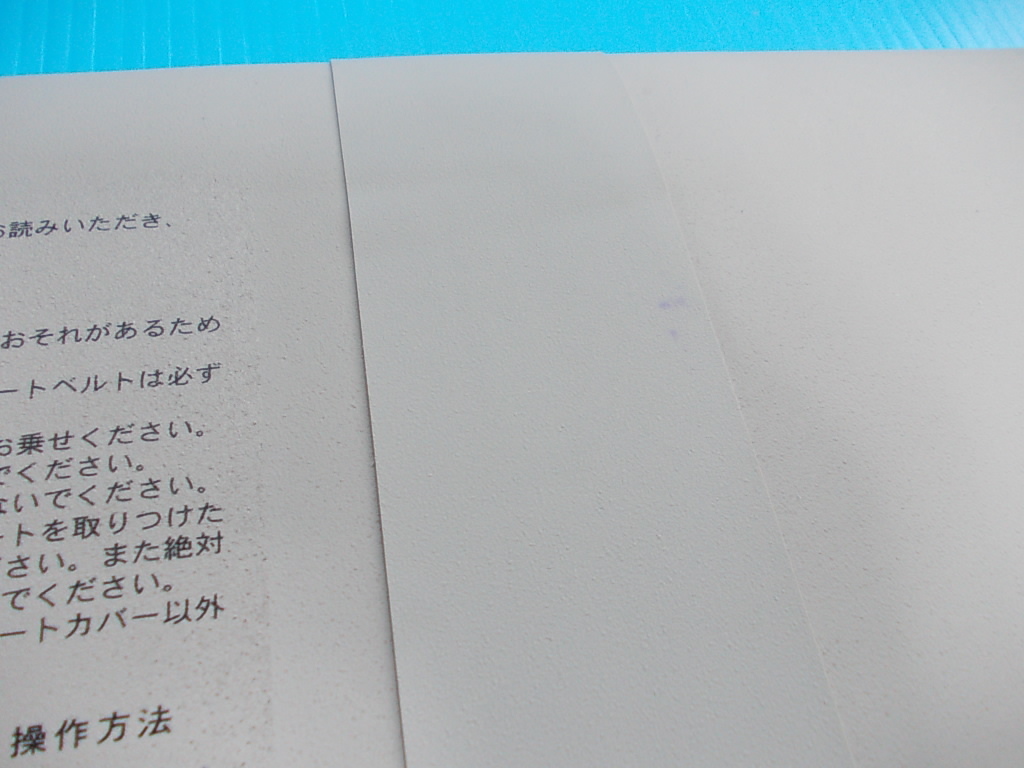 お読みいただき、
おそれがあるため
ートベルトは必ず
お乗せください。
でください。
ないでください。
ートを取りつけた
ださい。また絶対
でください。
ートカバー以外
操作方法